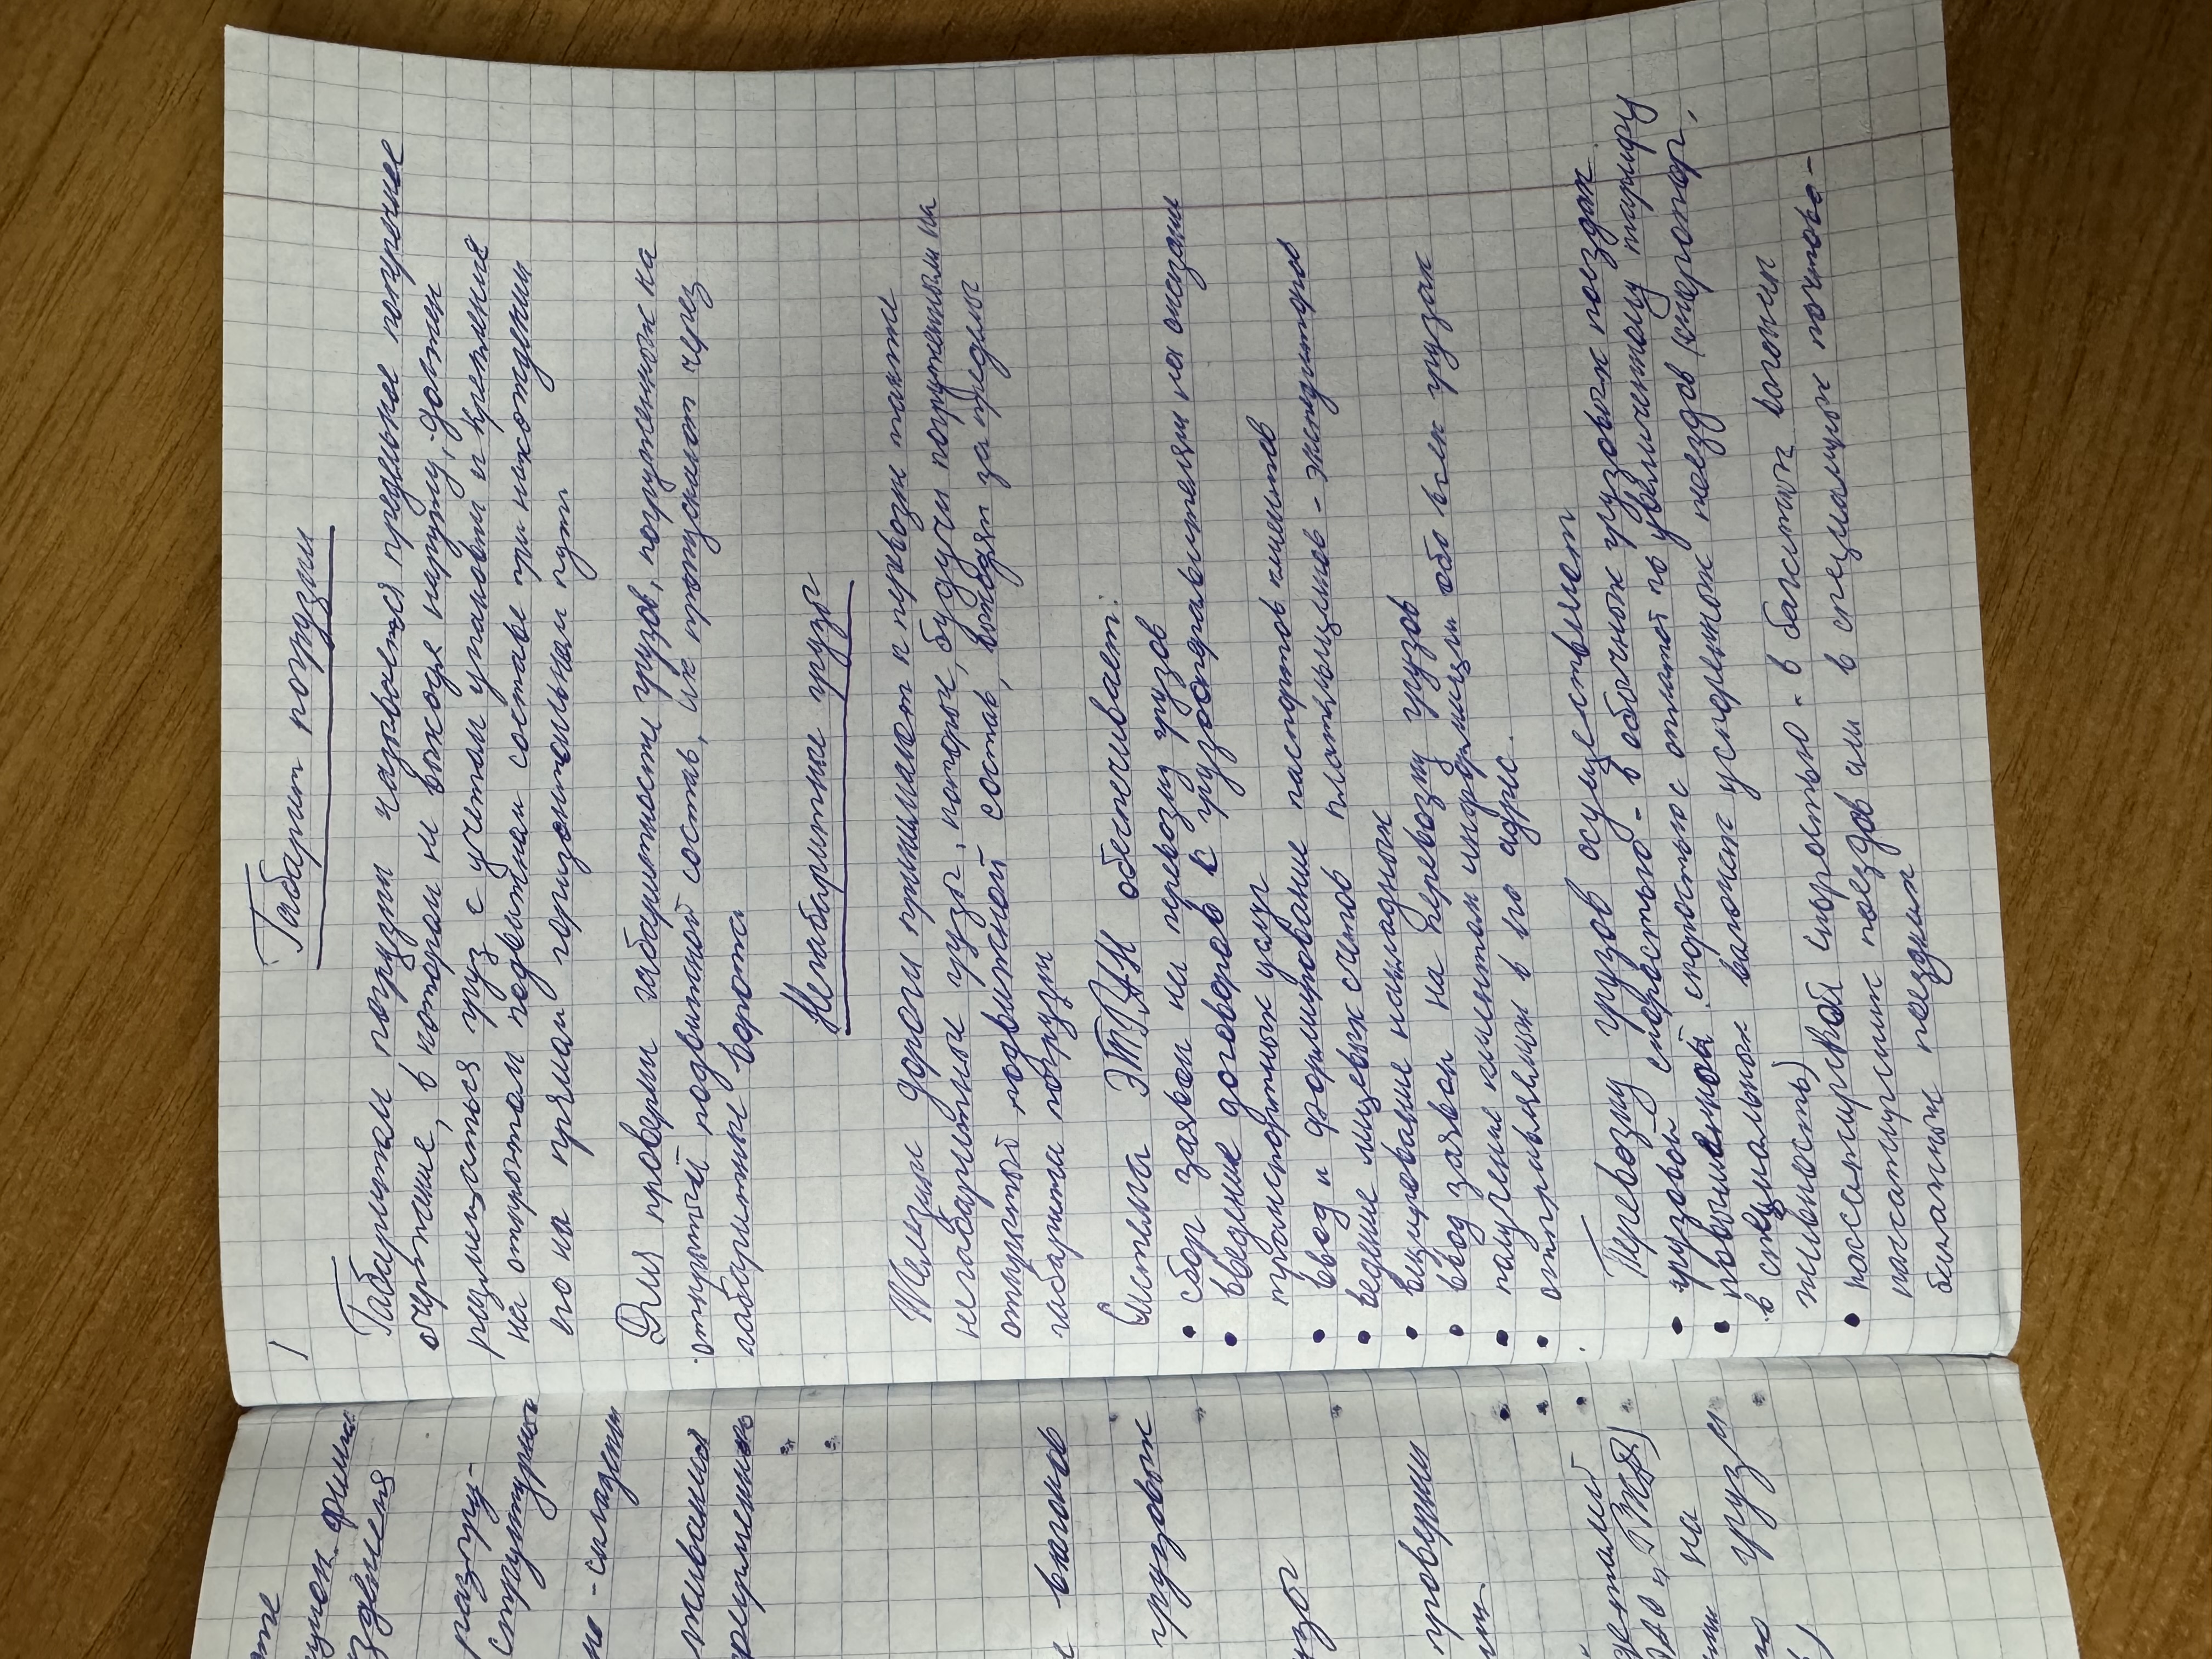 1
Габарит погрузки
Габаритом погрузки называется предельное поперечное
очертание, в котором не выходя наружу, должен
размещаться груз с учетом упаковки и крепления
на открытом подвижном составе при нахождении
его на прямом горизонтальном пути
Для проверки габаритности грузов, погруженных на
открытый подвижной состав, их пропускают через
габаритные ворота
Негабаритные грузы
Железные дороги принимают к перевозке также
негабаритные грузы, которые, будучи погруженными на
открытый подвижной состав, выходят за пределы
габарита погрузки
Система ЭТРАН обеспечивает:
• сбор заявок на перевозку грузов
• введение договоров с грузоотправителями на оказание
транспортных услуг
• ввод и формирование паспортов клиентов
• ведение лицевых счетов плательщиков - экспедиторов
• визирование накладных
• ввод заявок на перевозку грузов
• получение клиентом информации обо всех грузах
• отправляемых в его адрес.
Перевозку грузов осуществляют
• грузовой скоростью - в обычных грузовых поездах.
• повышенной скоростью с оплатой по увеличенному тарифу
в специальных вагонах ускоренных поездов (скоропор.,
живность)
• пассажирской скоростью - в багажных вагонах
пассажирских поездов или в специальных почтово-
багажных поездах
вагонов
грузовых
на
грузы